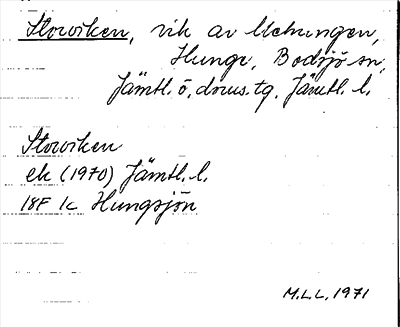 Storviken, vik av Mehungen,
Hunge, Bodsjö sn,
Jämtl. ö. doms. tg. Jämtl. l.
Storviken
ek (1970) Jämtl. l.
18F 1c Hungsjön
M.L.L. 1971